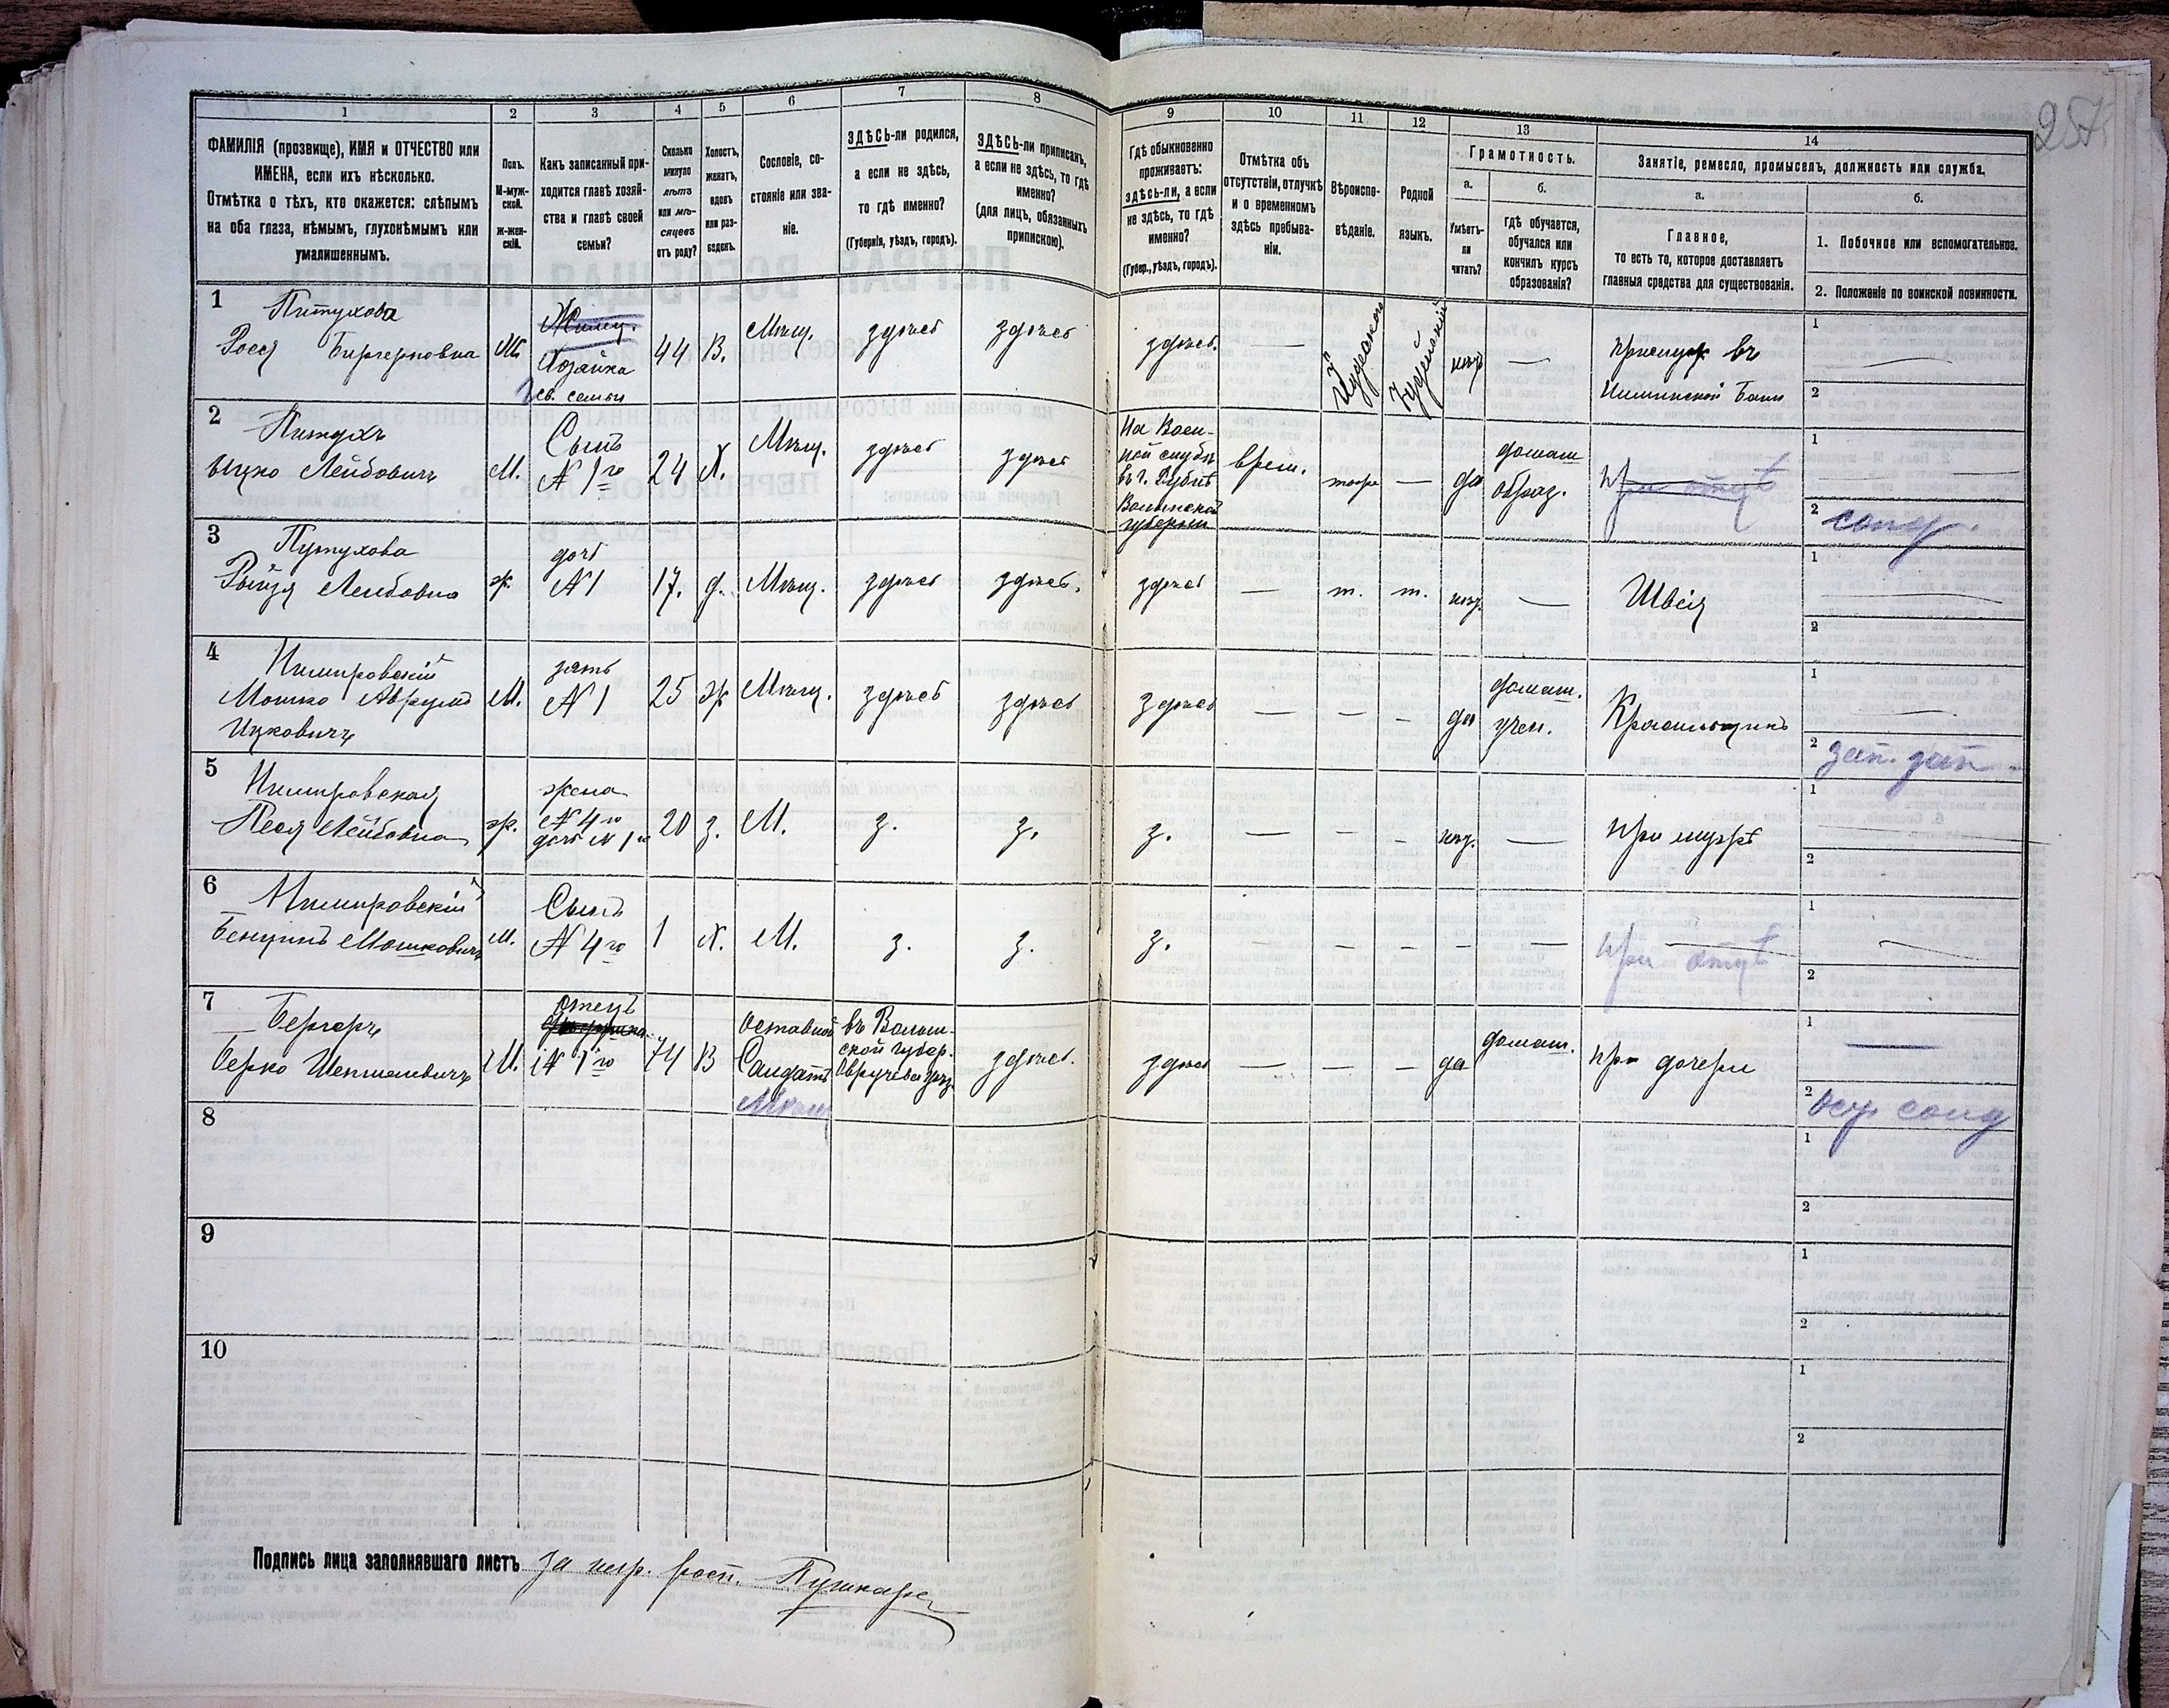 257
1
ФАМИЛІЯ (прозвище), ИМЯ и ОТЧЕСТВО или
ИМЕНА, если ихъ нѣсколько.
Отмѣтка о тѣхъ, кто окажется: слѣпымъ
на оба глаза, нѣмымъ, глухонѣмымъ или
умалишеннымъ.
2
Полъ.
М-муж-
ской.
ж-жен-
скій.
3
Какъ записанный при-
ходится главѣ хозяй-
ства и главѣ своей
семьи?
4
Сколько
минуло
лѣтъ
или мѣ-
сяцевъ
отъ роду?
5
Холостъ,
женатъ,
вдовъ
или раз-
веденъ.
6
Сословіе, со-
стояніе или зва-
ніе.
7
ЗДѢСЬ-ли родился,
а если не здѣсь,
то гдѣ именно?
(Губернія, уѣздъ, городъ).
8
ЗДѢСЬ-ли приписанъ,
а если не здѣсь, то гдѣ
именно?
(для лицъ, обязанныхъ
припискою).
9
Гдѣ обыкновенно
проживаетъ:
здѣсь-ли, а если
не здѣсь, то гдѣ
именно?
(Губер., уѣздъ, городъ).
10
Отмѣтка объ
отсутствіи, отлучкѣ
и о временномъ
здѣсь пребыва-
ніи.
11
Вѣроиспо-
вѣданіе.
12
Родной
языкъ.
13
Грамотность.
а.
Умѣетъ-
ли
читать?
б.
гдѣ обучается,
обучался или
кончилъ курсъ
образованія?
14
Занятіе, ремесло, промыселъ, должность или служба.
а.
Главное,
то есть то, которое доставляетъ
главныя средства для существованія.
б.
1. Побочное или вспомогательное.
2. Положеніе по воинской повинности.
1
Питухова
Рося
Хозяйка
св. семьи
44
В.
Мѣщ.
здѣсь
здѣсь
здѣсь.
Іудейской
Іудейскій
—
въ
1
2
2
Питухъ
Ицко Лейбовичъ
М.
Сынъ
№ 1го
24
Х.
Мѣщ.
здѣсь
здѣсь
На Воен-
ной службѣ
въ г. Дубнѣ
Волынской
губерніи
врем.
тоже
—
да
домаш
образ.
при отцѣ
1
2
солд.
3
Путухова
Рейзя Лейбовна
ж.
дочь
№ 1
17.
д.
Мѣщ.
здѣсь
здѣсь.
здѣсь
—
т.
т.
—
Швея
1
2
4
Нимировскій
Мошко Аврумъ
Ицковичъ
М.
зять
№ 1
25
ж
Мѣщ.
здѣсь
здѣсь
здѣсь
—
—
—
да
домаш.
учен.
Красильщикъ
1
2
5
Нимировская
Песя Лейбовна
ж.
жена
№ 4го
дочь № 1й
20
з.
М.
з.
з.
з.
—
—
—
—
при мужѣ
1
2
6
Нимировскій
Бенцинъ Мошковичъ
М.
Сынъ
№ 4го
1
Х.
М.
з.
з.
з.
—
—
—
—
—
при отцѣ
1
2
7
Бергеръ
Берко
М.
Отецъ
№ 1го
74
В
Оставной
Солдатъ
Мѣщ
въ Волын-
ской губер.
здѣсь.
здѣсь
—
—
—
да
домаш.
при дочери
1
2
солд
8
1
2
9
1
2
10
1
2
Подпись лица заполнявшаго листъ за негр. росп. Пушкарь